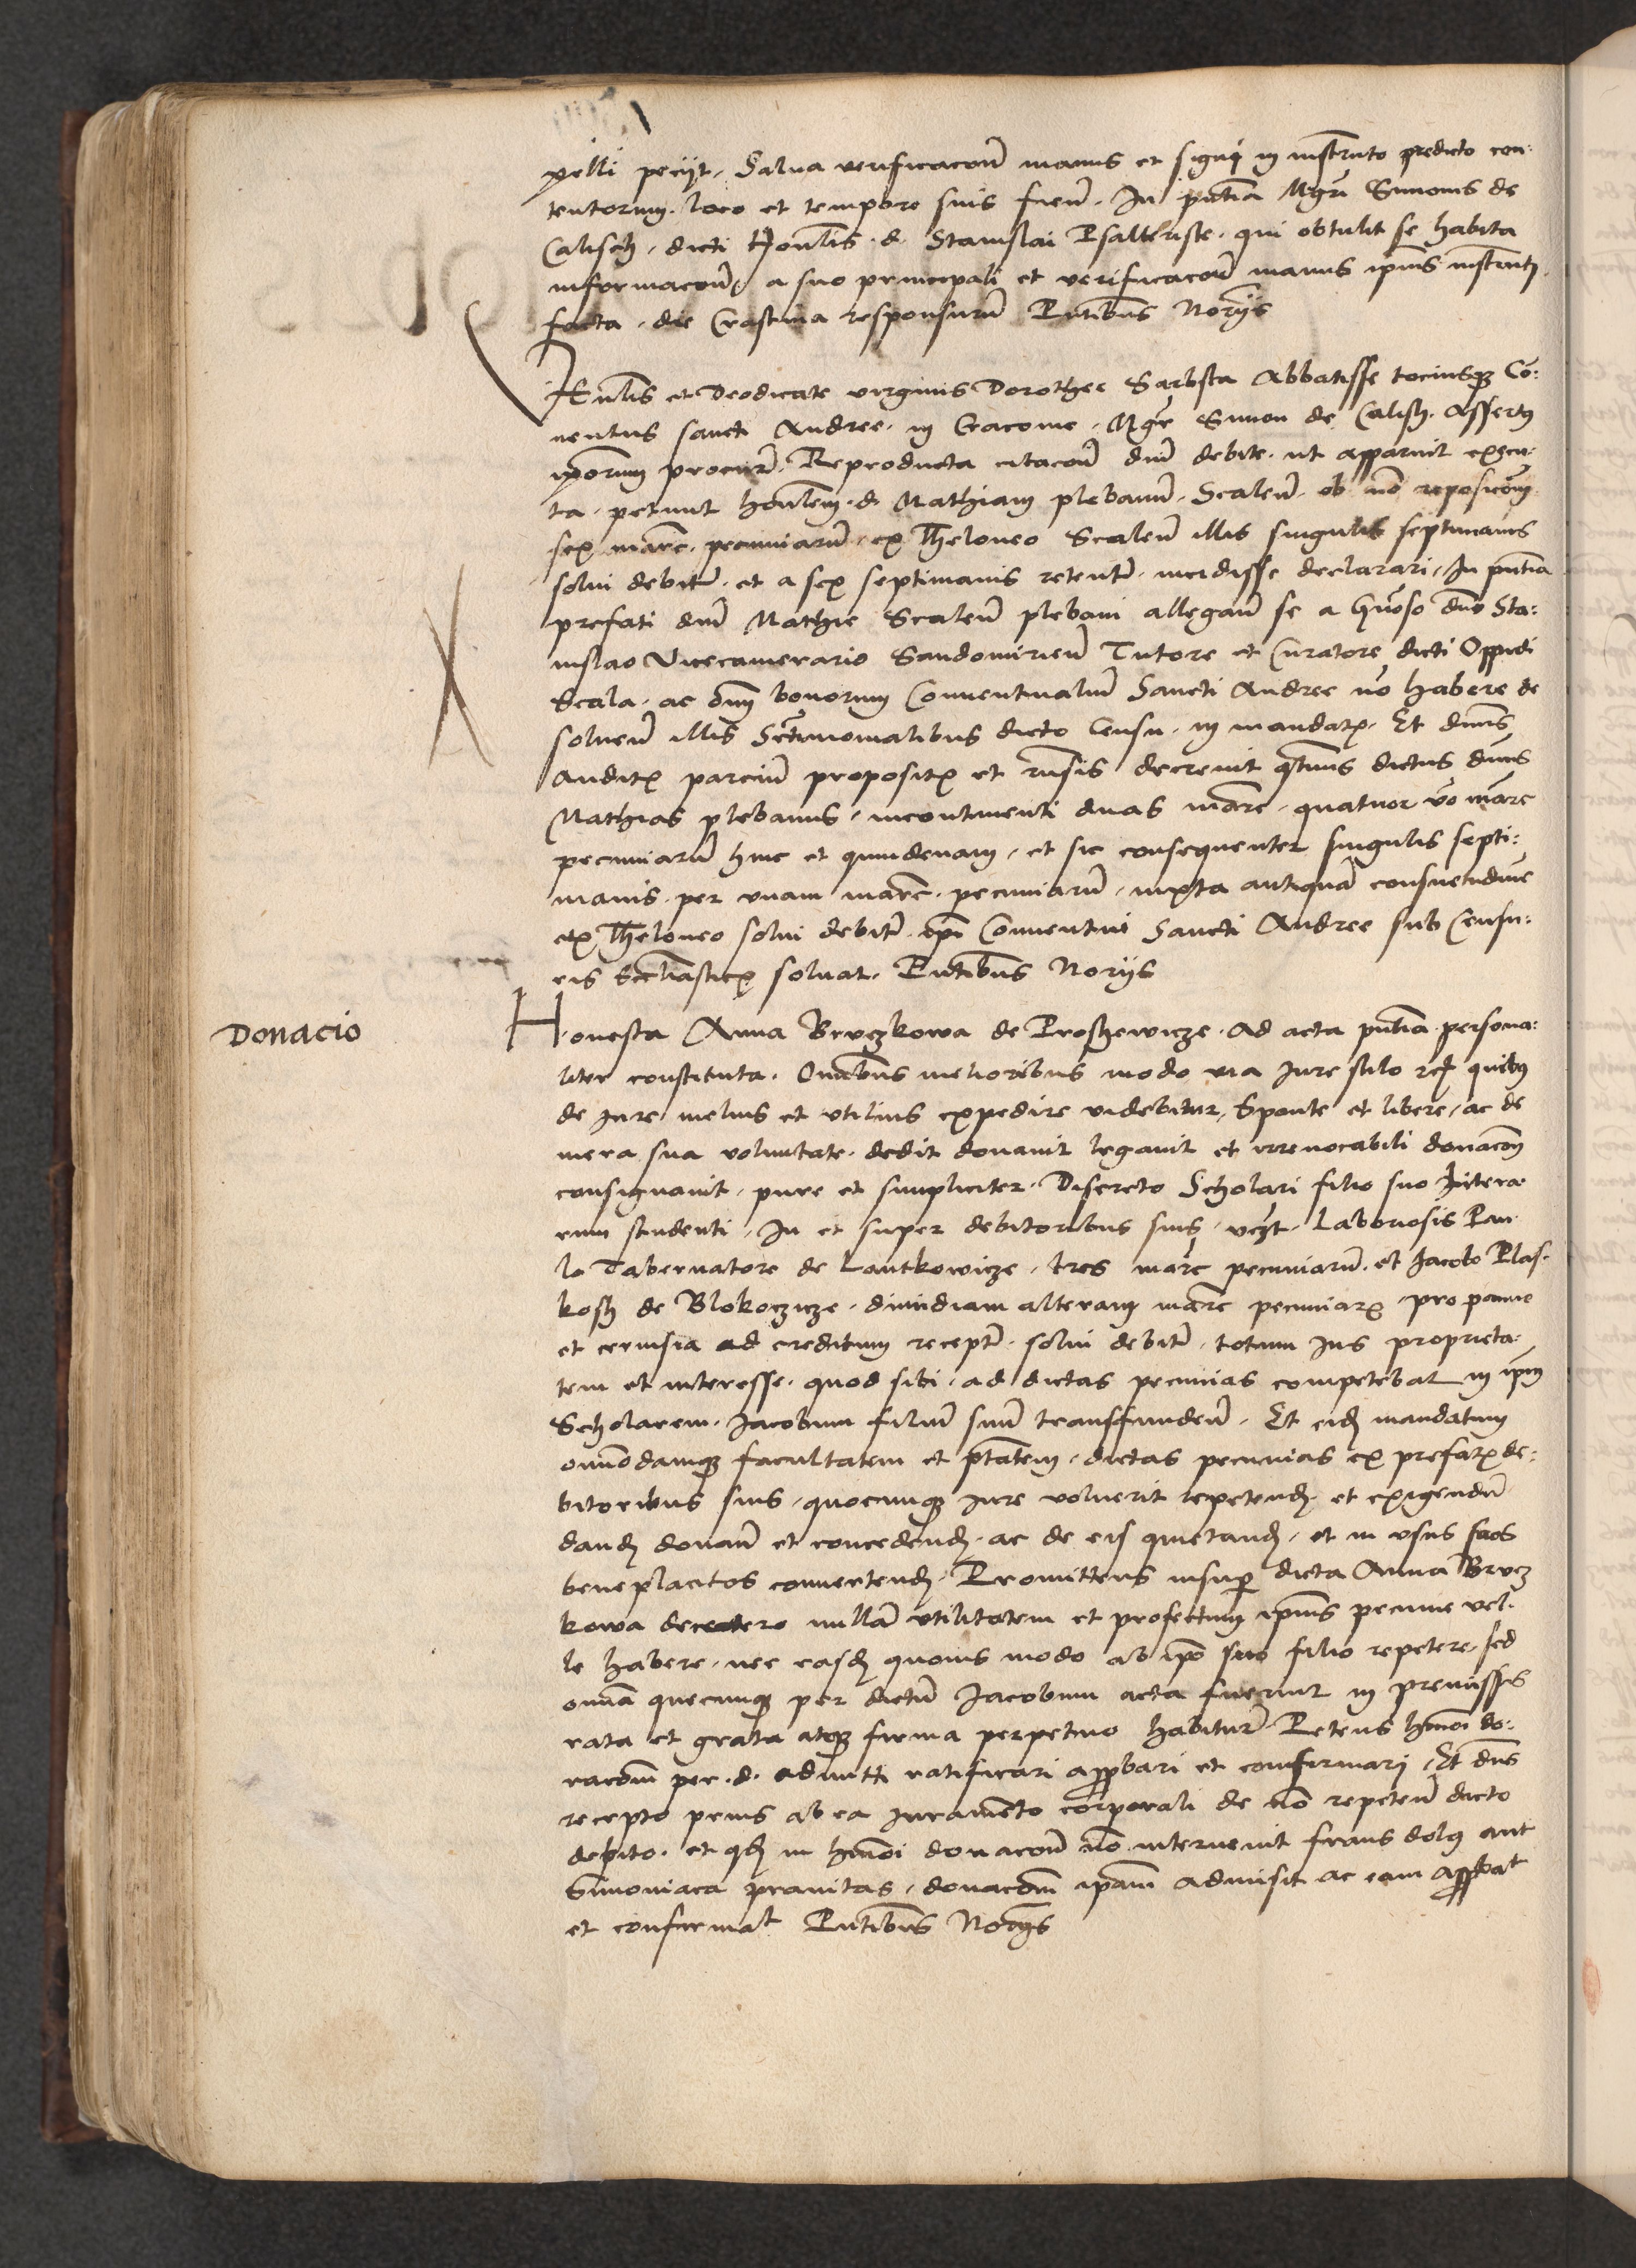 pelli peciit. Salua verificacoñ manus et signi in instrũto predicto con-
tentorum. loco et tempore suis fieñ. In pñtia Mgri Simonis de
Calisch, dicti honlis d. Stanislai Psalteriste. qui obtulit se habita
informacoñe a suo principali et verificacoñ manus ipius instruti
facta, die Crastina responsurũ Pntibus Norijs
Venlis et Deodicate virginis Dorothee Sarbska Abbatisse tociusqз Cõ-
uentus sancti Andree. in Cracouie. Mgr Simon de Calisch. Assertus
ipsorum procurr. Reproducta citacoñ dni debite. ut apparuit execu-
ta. petiuit honlem d Mathiam plebanũ. Scaleñ. ob nõ reposicõem
sex marc. pecuniarũ ex Theloneo Scaleñ illis singulis septimanis
solui debitr. et a sex septimanis retentr. incidisse declarari. In pñtia
prefati dni Mathie Scaleñ plebani allegañ se a Gñoso dno Sta-
nislao Vicecamerario Sandomirieñ Tutore et Curatore dicti Oppidi
Scala. ac oim bonorum Conuentualiũ Sancti Andree nõ habere de
solueñ illis Sctimonialibus dicto Censu. in mandatis. Et dnus
auditis parciũ propositis et rñsis decreuit qtinus dictus dnus
Mathias plebanus, incontinenti duas marc. quatuor vo marc
pecuniarũ hinc et quindenam, et sic consequenter singulis septi-
manis. per vnam marc. pecuniarũ, iuxta antiquã consuetudinẽ
ex Theloneo solui debitr. ipi Conuentui Sancti Andree sub Censu-
ris Eccliasticis soluat. Pntibus Norijs
Donacio
Honesta Anna Bruczkowa de Proschewicze. Ad acta pñtia persona-
liter constituta. Omibus melioribus modo via Iure stilo rcf quibus
de Iure melius et vtilius expedire videbitur, Sponte et libere, ac de
mera sua voluntate. dedit donauit legauit et irreuocabili donacõm
consignauit, pure et simpliciter. Discreto Scholari filio suo litera-
rum studenti. In et super debitoribus suis, vczt. Laboriosis Pau-
lo Tabernatore de Lantkowicze, tres marc pecuniarũ. et Jacobo Plas-
kosch de Blokoczicze. dimidiam alteram marc pecuniaris. pro panne
et ceruisia ad creditum receptr. solui debitr. totum Ius proprieta-
tem et interesse. quod sibi ad dictas pecunias competebat in ipm
Scholarem. Jacobum filiũ suũ transfundeñ. Et eidem mandatum
omnõdamqз facultatem et ptatem. dictas pecunias ex prefatis de-
bitoribus suis. quocunqз Iure voluerit repetend. et exigendũ
dand donañ et concedend. ac de eis quietand. et in vsus suos
beneplacitos conuertend. Promittens insuper dicta Anna Brucz
kowa decetero nullã vtilitatem et profectum ipius pecunie vel-
le habere. nec easdem quouis modo ab ipo suo filio repetere. sed
omia quecunqз per dictũ Jacobum acta fuerint in premissis
rata et grata atqз firma perpetuo habiturr. Petens hmoi do-
nacõm per. d. admitti ratificari apprbari et confirmari, Et dns
recepto prius ab ea iuramento corporali de nõ repeteñ dicto
debito. et qd in hmoi donacoñ nõ interuenit fraus dolus aut
Simoniaca prauitas, donacõm ipam admisit ac eam apprbat
et confirmat Pntibus Norijs